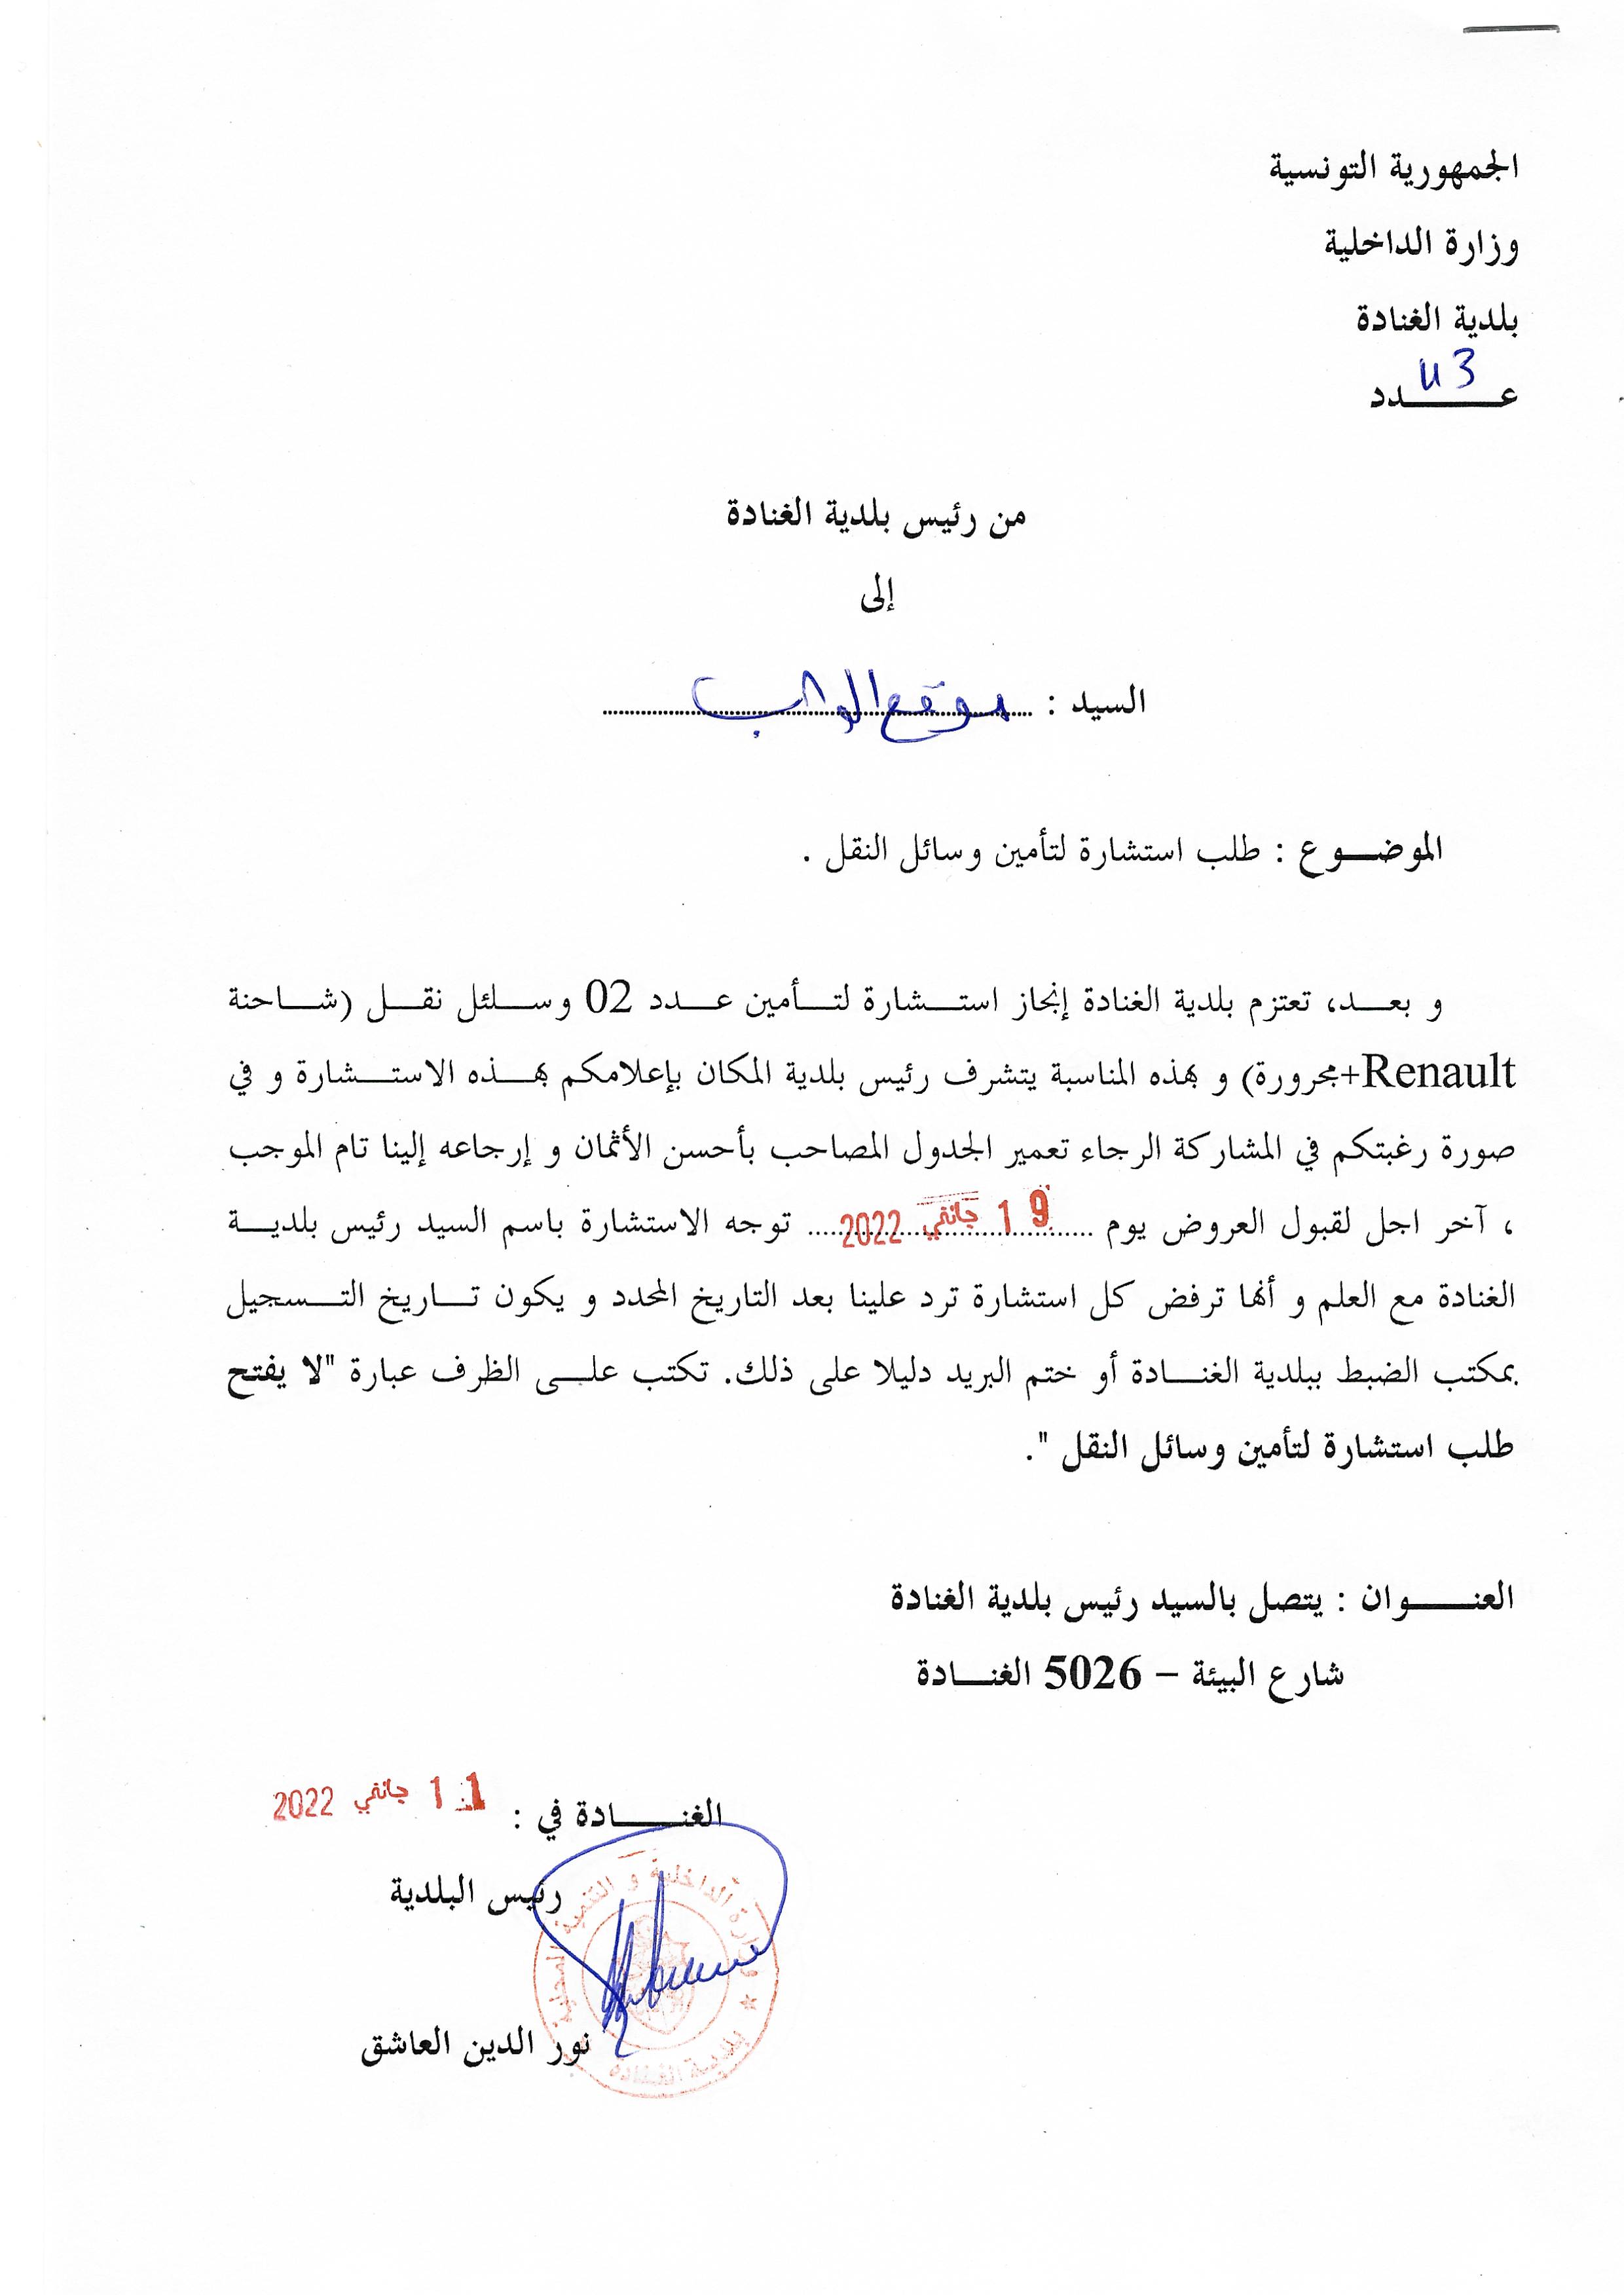 الجمهورية التونسية
وزارة الداخلية
بلدية الغنادة
عـــــدد 43
من رئيس بلدية الغنادة
إلى
السيد : موقع الواب
الموضــوع : طلب استشارة لتأمين وسائل النقل .
و بعـــد، تعتزم بلدية الغنادة إنجاز استـــشارة لتـــأمين عـــدد 02 وســـلئل نقـــل (شـــاحنة
Renault+مجرورة) و بهذه المناسبة يتشرف رئيس بلدية المكان بإعلامكم بهـــذه الاستـــشارة و في
صورة رغبتكم في المشاركة الرجاء تعمير الجدول المصاحب بأحسن الأثمان و إرجاعه إلينا تام الموجب
، آخر اجل لقبول العروض يوم 19 جانفي 2022 توجه الاستشارة باسم السيد رئيس بلديـــة
الغنادة مع العلم و أنها ترفض كل استشارة ترد علينا بعد التاريخ المحدد و يكون تـــاريخ التـــسجيل
بمكتب الضبط ببلدية الغنـــادة أو ختم البريد دليلا على ذلك. تكتب علـــى الظرف عبارة "لا يفتح
طلب استشارة لتأمين وسائل النقل ".
العنـــــوان : يتصل بالسيد رئيس بلدية الغنادة
شارع البيئة – 5026 الغنـــادة
الغنـــــادة في : 11 جانفي 2022
رئيس البلدية
وزارة الداخلية و التنمية المحلية
بلدية الغنادة
نور الدين العاشق